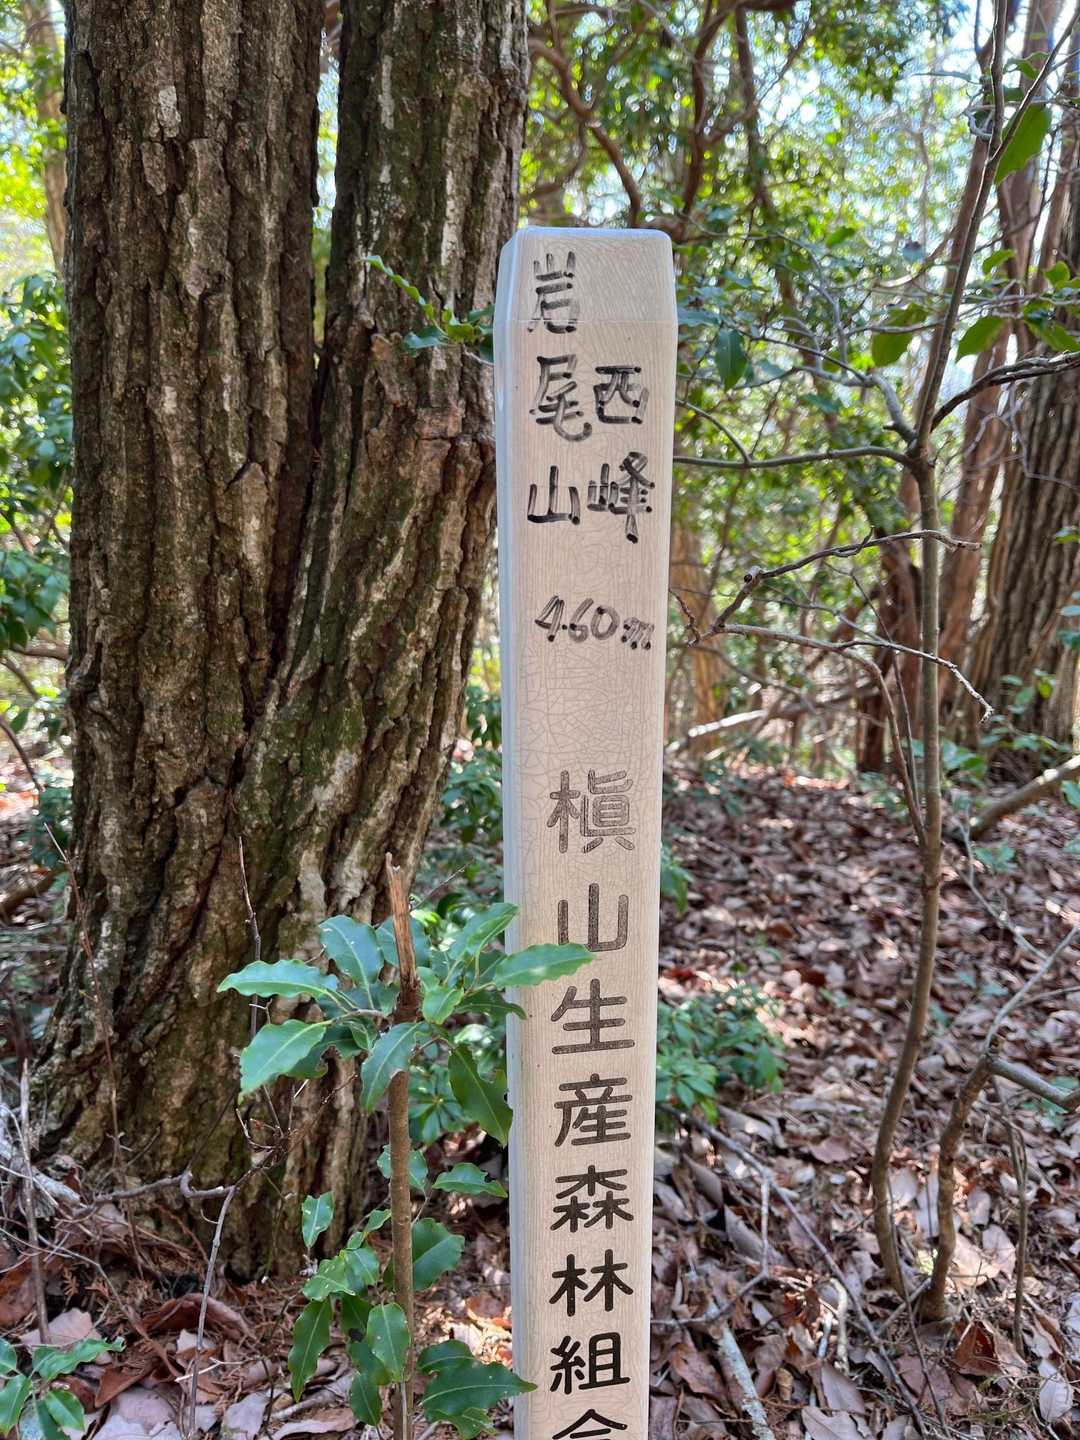 岩尾山
西峰
460m
槇山生産森林組合